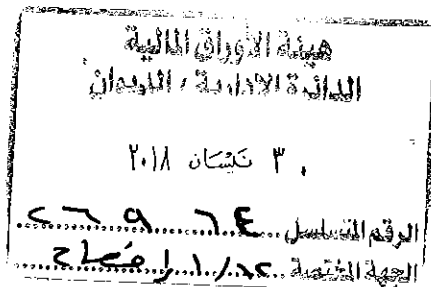 هيئة الأوراق المالية
الدائرة الادارية / الديوان
٣٠ نيسان ٢٠١٨
الرقم المتسلسل
الجهة المختصة ١٢/١ إفصاح